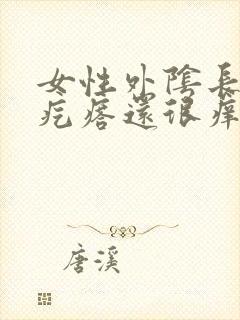 女性外陰長
疙瘩還很痒
唐溪